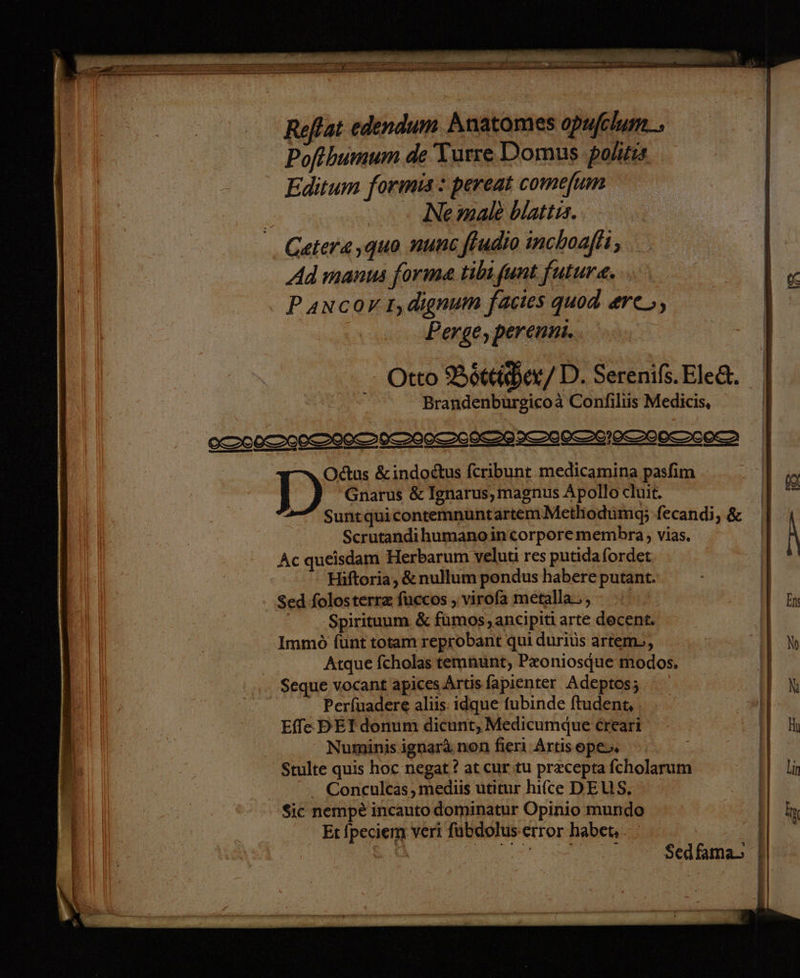 Reſtat edendum Anatomes opuſclum,
Poſthumum de Turre Domus politis
Editum formis : pereat comeſum
Ne malè blattis.
Cætera, quo nunc ſtudio inchoaſti,
Ad manus formæ tibi ſunt futuræ.
PANCOVI, dignum facies quod ære,
Perge, perenni.
Otto Bötticher / D. Sereniſs. Elect.
Brandenburgico à Conſiliis Medicis,
DOctus & indoctus ſcribunt medicamina pasſim
Gnarus & Ignarus, magnus Apollo cluit.
Sunt qui contemnunt artem Methodumq; ſecandi, &
Scrutandi humano in corpore membra, vias.
Ac queisdam Herbarum veluti res putida ſordet
Hiſtoria, & nullum pondus habere putant.
Sed ſolos terræ ſuccos, viroſa metalla,
Spirituum & fumos, ancipiti arte docent.
Immò ſunt totam reprobant qui duriùs artem,
Atque ſcholas temnunt, Pæoniosque modos.
Seque vocant apices Artis ſapienter Adeptos;
Perſuadere aliis idque ſubinde ſtudent,
Eſſe DEI donum dicunt, Medicumque creari
Numinis ignarâ non fieri Artis ope.
Stulte quis hoc negat? at cur tu præcepta ſcholarum
Conculcas, mediis utitur hiſce DEUS.
Sic nempè incauto dominatur Opinio mundo
Et ſpeciem veri ſubdolus error habet,
Sed fama
Ens
No
Ni
Hu
Lin